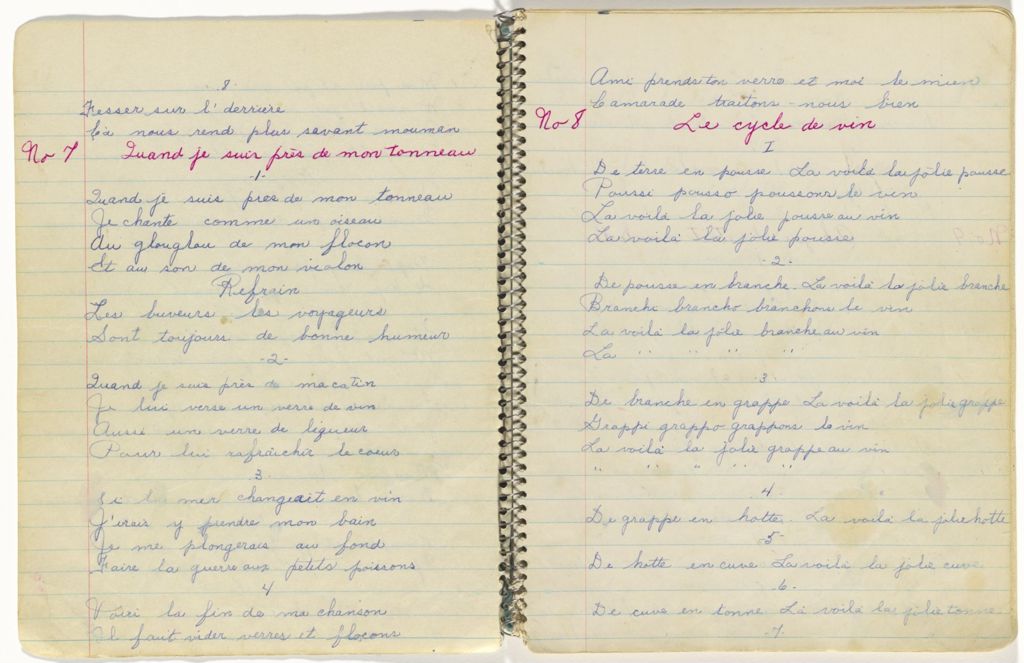 8
Fesser sur l'derriere
Ça nous rend plus savant mouman
No 7 Quand je suis près de mon tonneau
-1-
Quand je suis pres de mon tonneau
Je chante comme un oiseau
Au glouglou de mon flocon
Et au son de mon violon
Refrain
Les buveurs les voyageurs
Sont toujours de bonne humeur
-2-
Quand je suis près de ma catin
Je lui verse un verre de vin
Aussi un verre de liqueur
Pour lui rafraichir le coeur
3
Si la mer changeait en vin
J'irais y prendre mon bain
Je me plongerais au fond
Faire la guerre aux petits poissons
4
Voici la fin de ma chanson
Il faut vider verres et flocons
Ami prends ton verre et moi le mien
Camarade traitons-nous bien
No 8 Le cycle de vin
I
De terre en pousse. La voilà la jolie pousse
Poussi pousso poussons le vin
La voilà la jolie pousse au vin
La voilà la jolie pousse
-2-
De pousse en branche. La voilà la jolie branche
Branchi brancho branchons le vin
La voilà la jolie branche au vin
La " " " "
3
De branche en grappe La voilà la jolie grappe
Grappi grappo grappons le vin
La voilà la jolie grappe au vin
" " " " "
4
De grappe en hotte. La voilà la jolie hotte
-5-
De hotte en cuve La voilà la jolie cuve
-6-
De cuve en tonne La voilà la jolie tonne
-7-